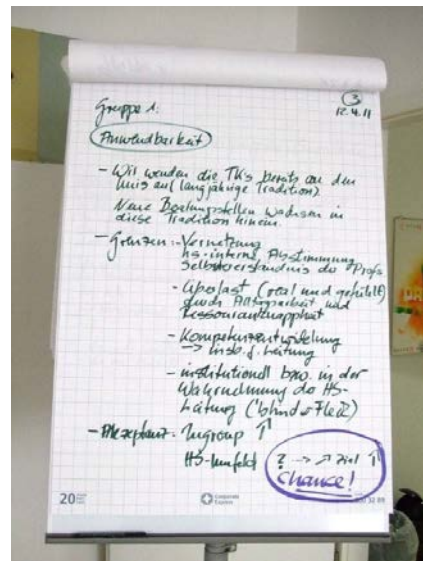 Gruppe 1:
③
12.4.11
Anwendbarkeit
- Wir wenden die TKs bereits an den
Unis an (langjährige Tradition).
Neue Beratungsstellen wachsen in
diese Tradition hinein.
- Grenzen: - Vernetzung
hs-interne Abstimmung
Selbstverständnis der Profs
- Überlast (real und gefühlt)
durch Alltagsarbeit und
Ressourcenknappheit
- Kompetenzentwicklung
→ insb. f. Leitung
- institutionell bzw. in der
Wahrnehmung der HS-
Leitung ("blinder Fleck")
- Akzeptanz: Ingroup ↑
HS-Umfeld ? → ↗ Ziel ↑
Chance!
20
Corporate
Express